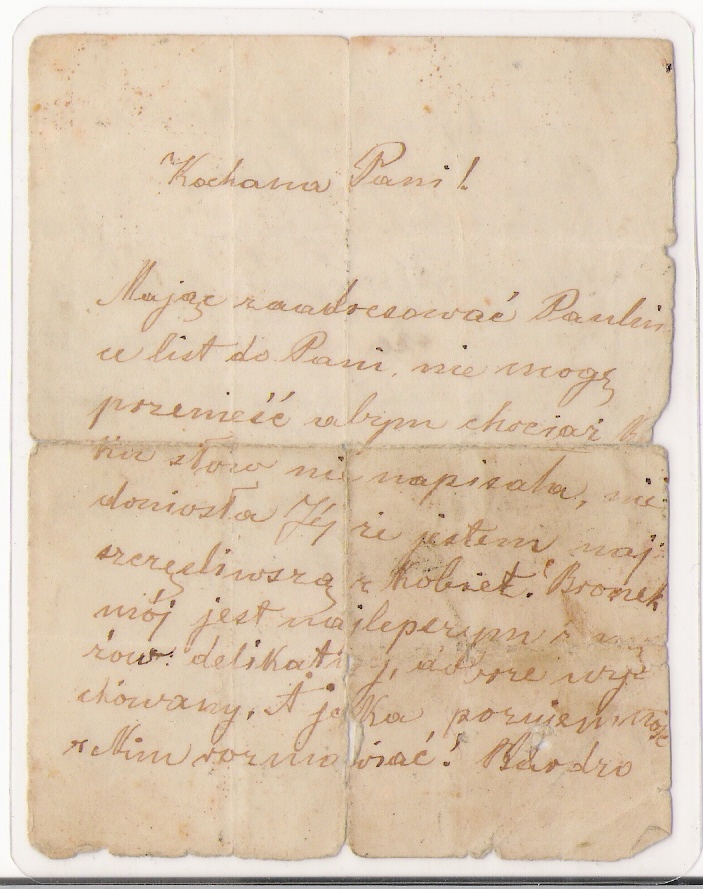 Kochana Pani!
Mając zaadresować Paulin
ce list do Pani, nie mogę
przenieść abym chociaż
ku słów nie napisała, nie
doniosła Jej że jestem naj
szczęśliwszą z kobiet. Bronek
mój jest najlepszym z mę
żów. delikatny, dobrze wy
chowany. A jaka przyjemność
z Nim rozmawiać! Bardzo